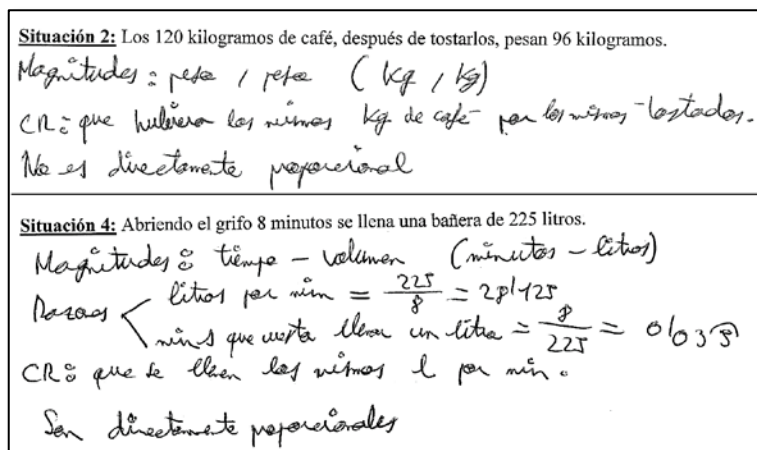 Situación 2: Los 120 kilogramos de café, después de tostarlos, pesan 96 kilogramos.
Magnitudes: peso / peso (kg / kg)
CR: que hubiera los mismos kg de café por los mismos tostados.
No es directamente proporcional
Situación 4: Abriendo el grifo 8 minutos se llena una bañera de 225 litros.
Magnitudes: tiempo – volumen (minutos – litros)
Razones litros por min = 225/8 = 28'125
mins que cuesta llenar un litro = 8/225 = 0'035
CR: que se llenen los mismos l por min.
Son directamente proporcionales